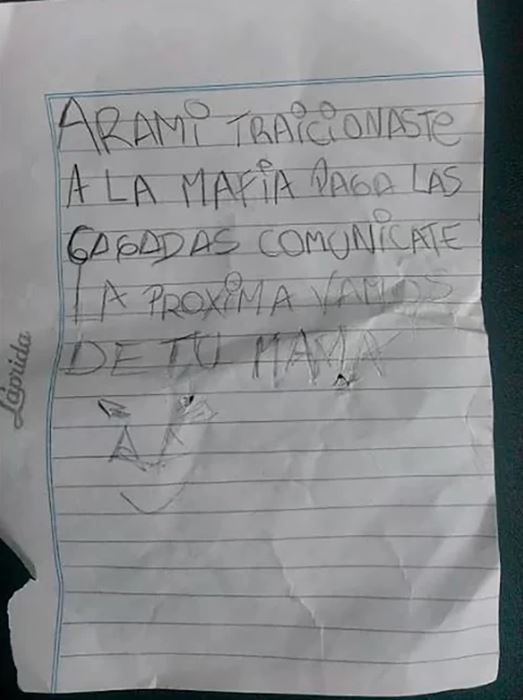 ARAMI TRAICIONASTE
A LA MAFIA PAGA LAS
GAGADAS COMUNICATE
LA PROXIMA VAMOS
DE TU MAMA
Láprida